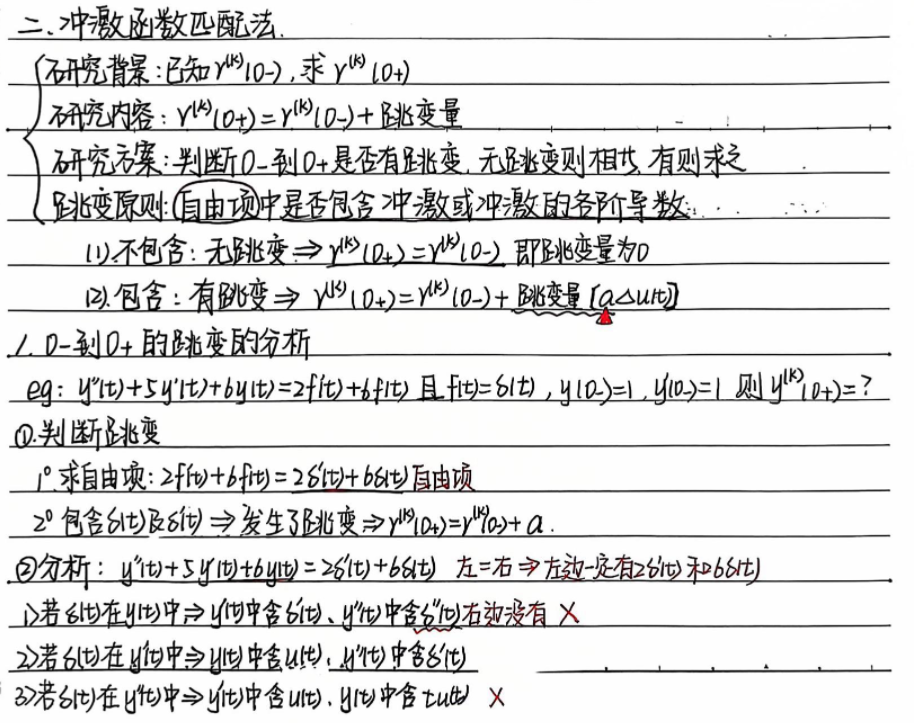 二、冲激函数匹配法.
研究背景:已知r⁽ᵏ⁾(0-),求 r⁽ᵏ⁾(0+)
研究内容: r⁽ᵏ⁾(0+)=r⁽ᵏ⁾(0-)+跳变量
研究方案:判断0-到0+是否有跳变,无跳变则相等,有则求之
跳变原则:自由项中是否包含冲激或冲激的各阶导数.
(1).不包含:无跳变⇒r⁽ᵏ⁾(0+)=r⁽ᵏ⁾(0-) 即跳变量为0
(2).包含:有跳变⇒ r⁽ᵏ⁾(0+)=r⁽ᵏ⁾(0-)+跳变量[aΔu(t)]
1. 0-到0+的跳变的分析
eg: y''(t)+5y'(t)+6y(t)=2f'(t)+6f(t) 且f(t)=δ(t),y(0-)=1,y'(0-)=1 则 y⁽ᵏ⁾(0+)=?
①.判断跳变
1°.求自由项:2f'(t)+6f(t)=2δ'(t)+6δ(t)自由项
2° 包含δ(t)及δ'(t)⇒发生了跳变⇒r⁽ᵏ⁾(0+)=r⁽ᵏ⁾(0-)+a.
②分析: y''(t)+5y'(t)+6y(t)=2δ'(t)+6δ(t) 左=右⇒左边一定有2δ'(t)和6δ(t)
1>若δ(t)在y(t)中⇒y'(t)中含δ'(t)、y''(t)中含δ''(t)右边没有 ×
2>若δ(t)在y'(t)中⇒y(t)中含u(t)、y''(t)中含δ'(t)
3>若δ(t)在y''(t)中⇒y'(t)中含u(t)、y(t)中含tu(t) ×